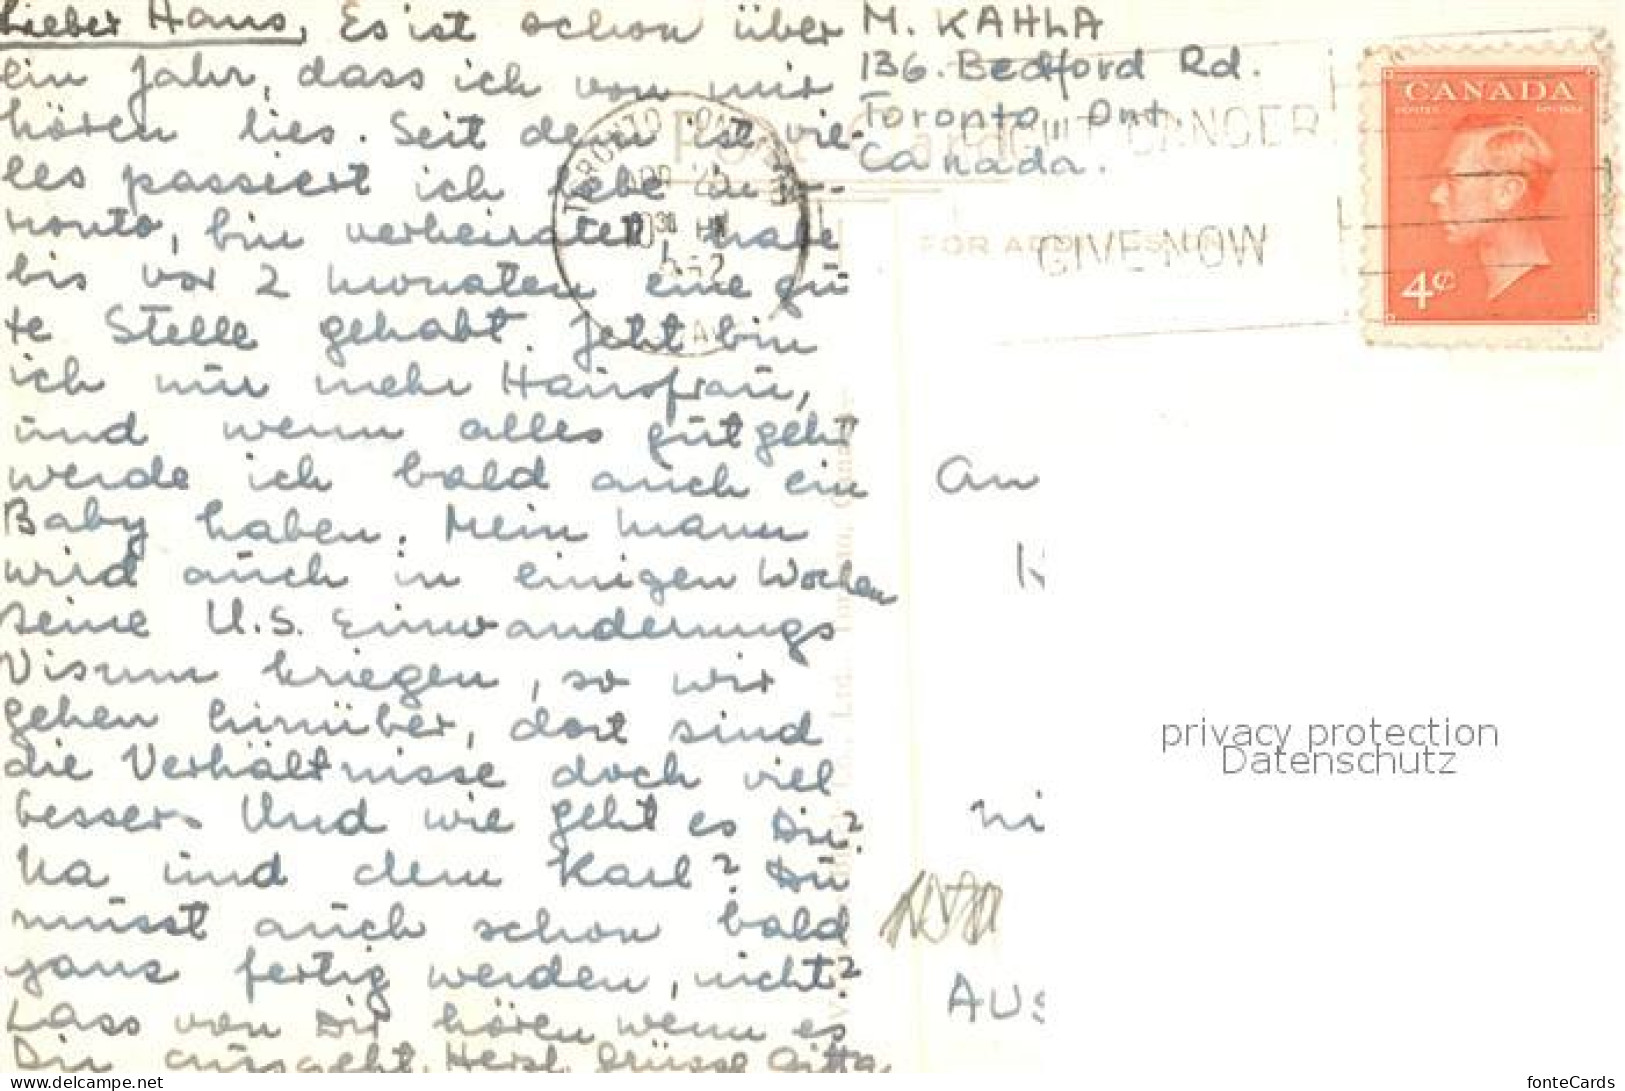 Lieber Hans, Es ist schon über
ein Jahr, dass ich von mir
hören lies. Seit dem ist vie-
les passiert ich lebe in To-
ronto, bin verheiratet, habe
bis vor 2 monaten eine gu
te Stelle gehabt. Jetzt bin
ich nur mehr Hausfrau,
und wenn alles gut geht
werde ich bald auch ein
Baby haben. Mein mann
wird auch in einigen Wochen
seine U.S. Einwanderungs
Visum kriegen, so wir
gehen hinüber, dort sind
die Verhältnisse doch viel
besser. Und wie geht es Dir?
Na und dem Karl? Du
musst auch schon bald
ganz fertig werden, nicht?
Lass von Dir hören wenn es
Dir ausgeht. Herzl. Grüsse Gitta.
M. KAHLA
136. Bedford Rd.
Toronto, Ont.
Canada.
Post Card
FOR ADDRESS
TORONTO ONTARIO
APR
CANCER
GIVE NOW
CANADA
POSTES POSTAGE
4¢
An
Ni
AUS
privacy protection
Datenschutz
www.delcampe.net
fonteCards